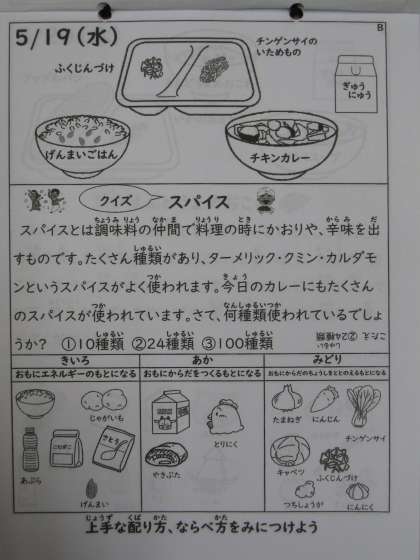 B
5/19(水)
チンゲンサイの
いためもの
ふくじんづけ
ぎゅう
にゅう
げんまいごはん
チキンカレー
クイズ
スパイス
ちょうみりょう なかま りょうり とき からみ だ
スパイスとは調味料の仲間で料理の時にかおりや、辛味を出
しゅるい
すものです。たくさん種類があり、ターメリック・クミン・カルダモ
つか きょう
ンというスパイスがよく使われます。今日のカレーにもたくさん
つか なんしゅるいつか
のスパイスが使われています。さて、何種類使われているでしょ
しゅるい しゅるい しゅるい
うか? ①10種類 ②24種類 ③100種類
こたえ ②24種類
しゅるい
きいろ
あか
みどり
おもにエネルギーのもとになる
おもにからだをつくるもとになる
おもにからだのちょうしをととのえるもとになる
じゃがいも
こむぎこ
さとう
あぶら
げんまい
とりにく
やきぶた
たまねぎ
にんじん
チンゲンサイ
キャベツ
ふくじんづけ
つちしょうが
にんにく
じょうず くば かた かた
上手な配り方、ならべ方をみにつけよう